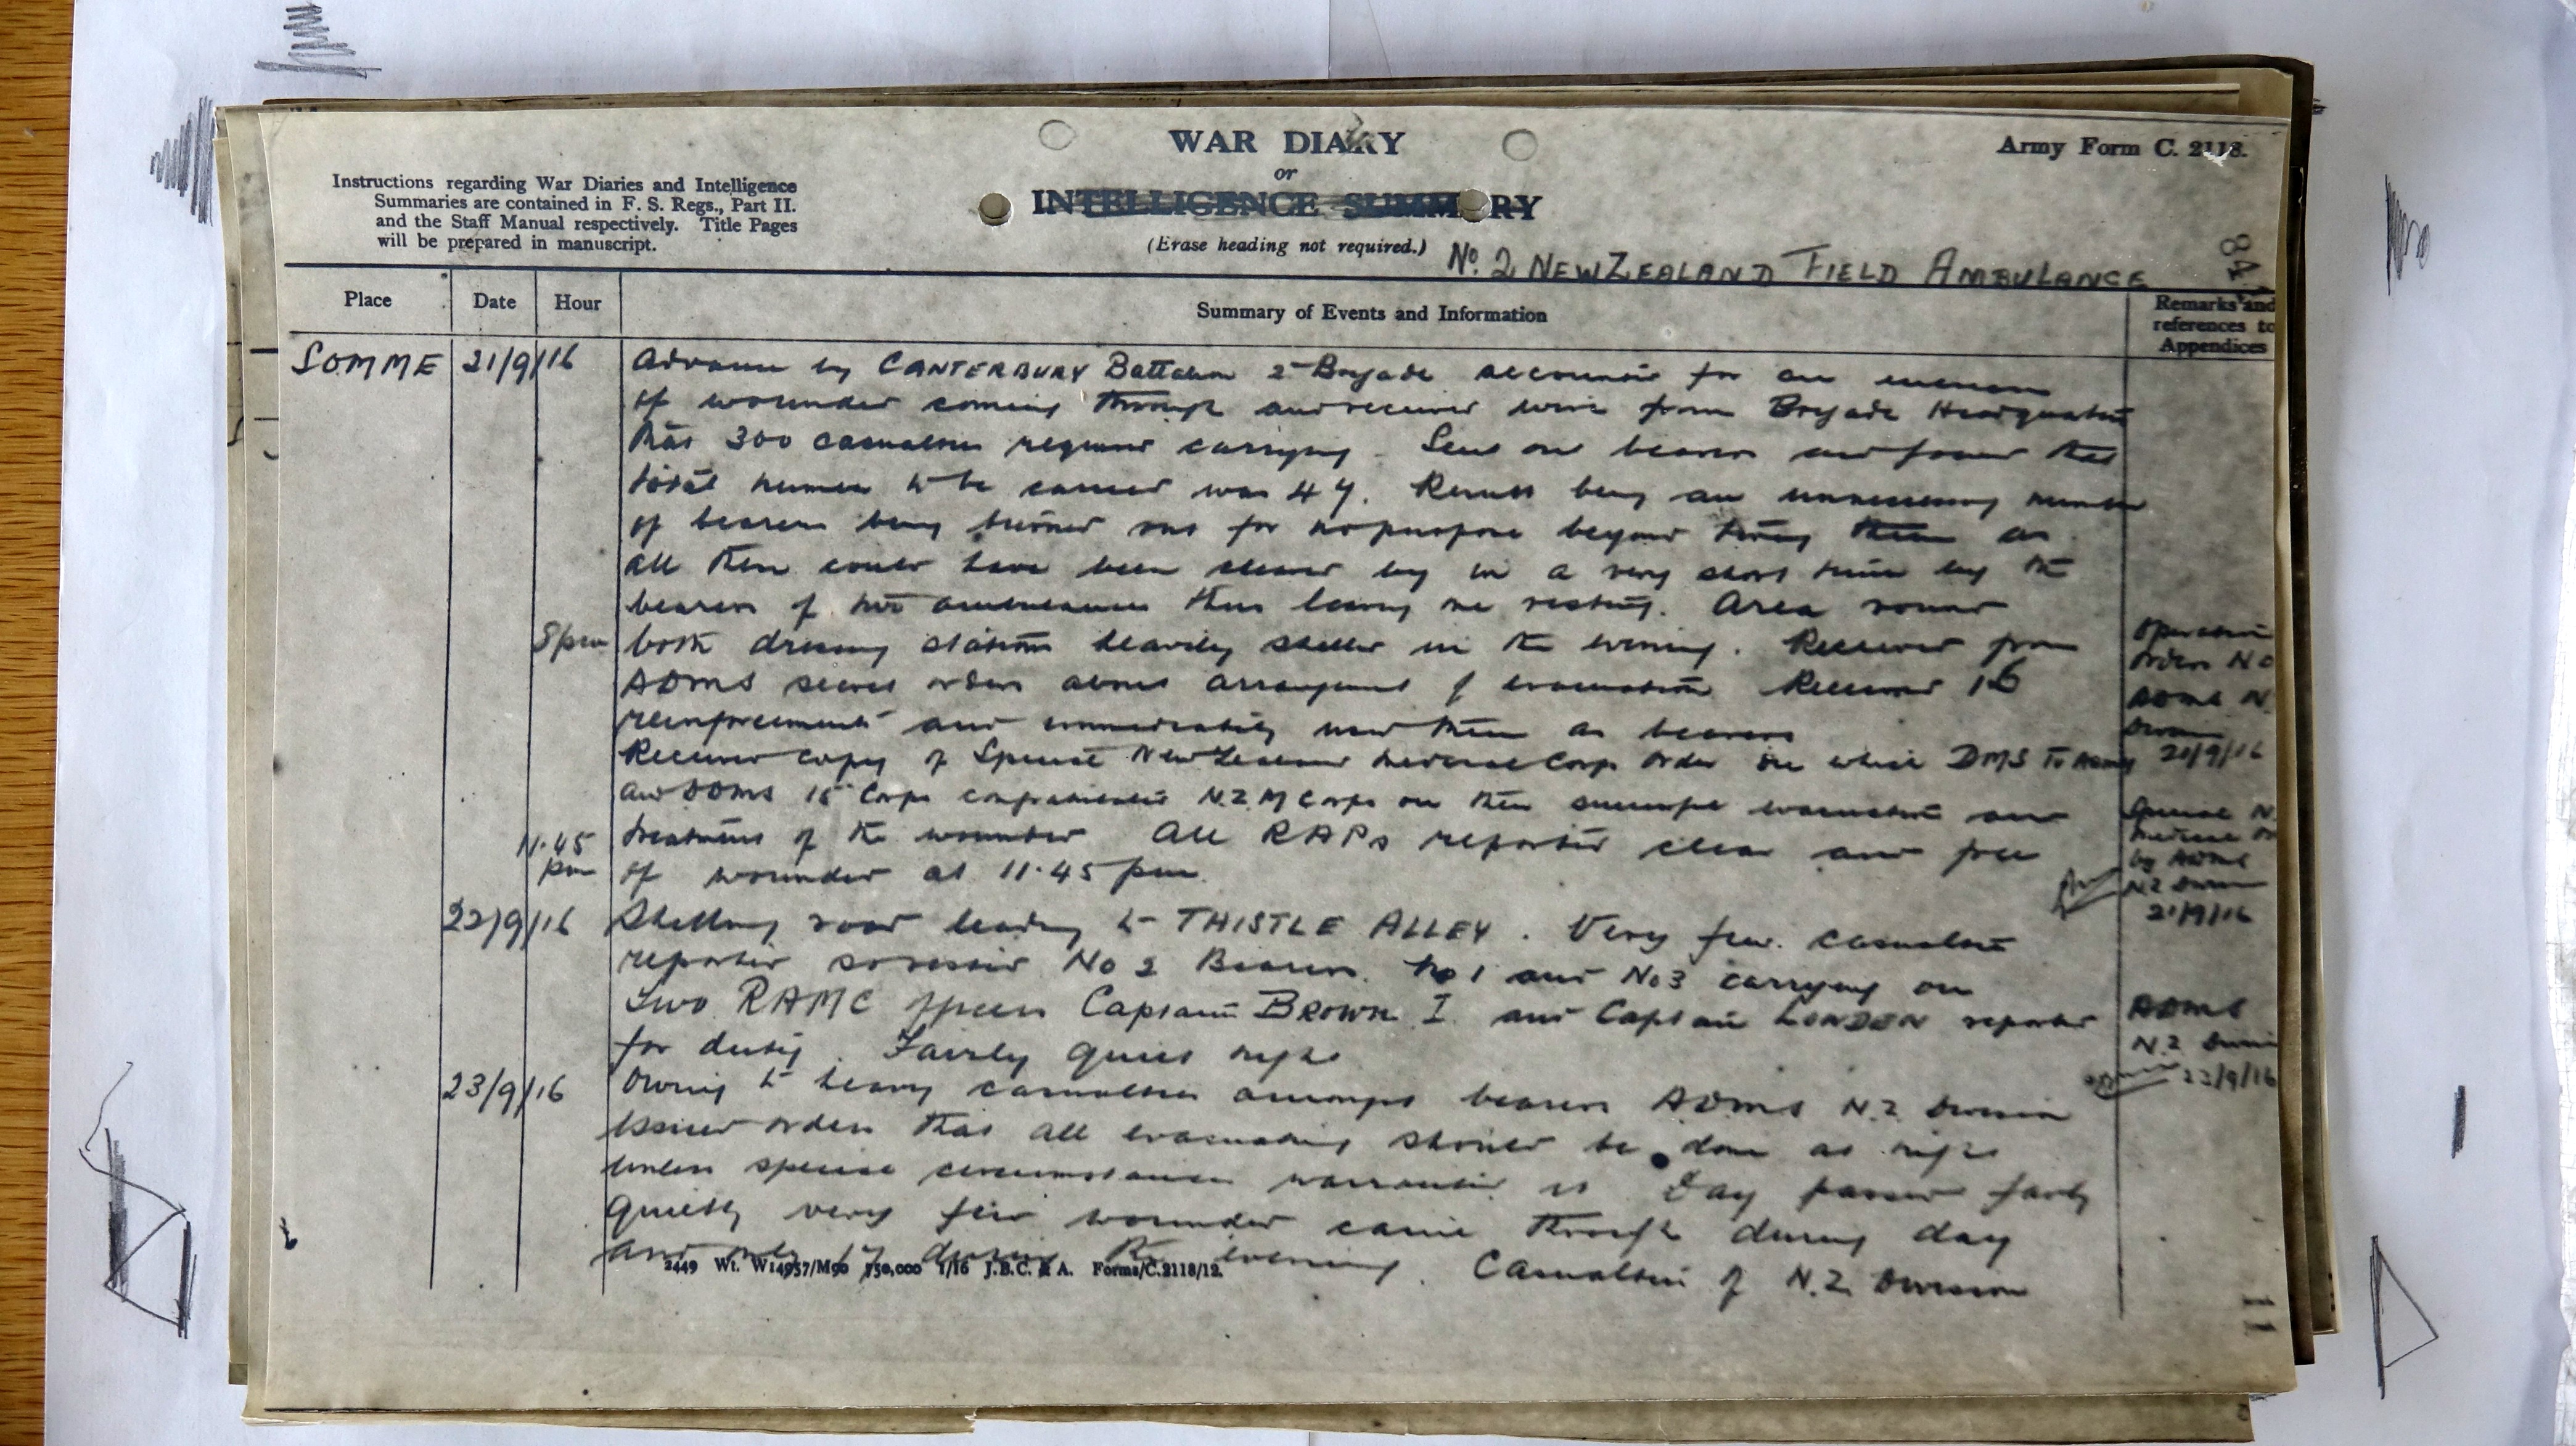 WAR DIARY
or
INTELLIGENCE SUMMARY
(Erase heading not required.)
Army Form C. 2118.
Instructions regarding War Diaries and Intelligence
Summaries are contained in F. S. Regs., Part II.
and the Staff Manual respectively. Title Pages
will be prepared in manuscript.
No. 2 NEW ZEALAND FIELD AMBULANCE
84
Place
Date
Hour
Summary of Events and Information
Remarks and
references to
Appendices
SOMME 21/9/16 Advance by CANTERBURY Battalion 2 Brigade accounted for an increase
of wounded coming through and received wire from Brigade Headquarters
that 300 casualties required carrying - Sent out bearers and found that
total number to be carried was 47. Result being an unnecessary number
of bearers being turned out for no purpose beyond tiring them as
all these could have been cleared by in a very short time by the
bearers of two ambulances thus leaving one resting. Area round
8pm both dressing stations heavily shelled in the evening. Received from
ADMS secret orders about arrangement of evacuation Received 16
reinforcements and immediately used them as bearers
Received copy of Special New Zealand Medical Corps Order in which DMS IV Army
and DDMS 15 Corps congratulated N.Z.M Corps on their successful evacuation and
treatment of the wounded All RAPs reported clear and free
11.45 pm of wounded at 11.45 pm.
Operation
Orders No
ADMS N.
Division
21/9/16
Special N.
Medical Or
by ADMS
N.Z Division
21/9/16
22/9/16 Shelling road leading to THISTLE ALLEY. Very few casualties
reported so rested No 2 Bearers. No 1 and No 3 carrying on
Two RAMC officers Captain BROWN I. and Captain LONDON reported
for duty. Fairly quiet night
ADMS
N.Z Division
22/9/16
23/9/16 Owing to heavy casualties amongst bearers ADMS N.Z Division
issued orders that all evacuating should be done at night
unless special circumstances warranted it Day passed fairly
quietly very few wounded came through during day
and only 17 during the evening. Casualties of N.Z Division
2449 Wt. W14957/M90 750,000 1/16 J.B.C. & A. Forms/C.2118/12.